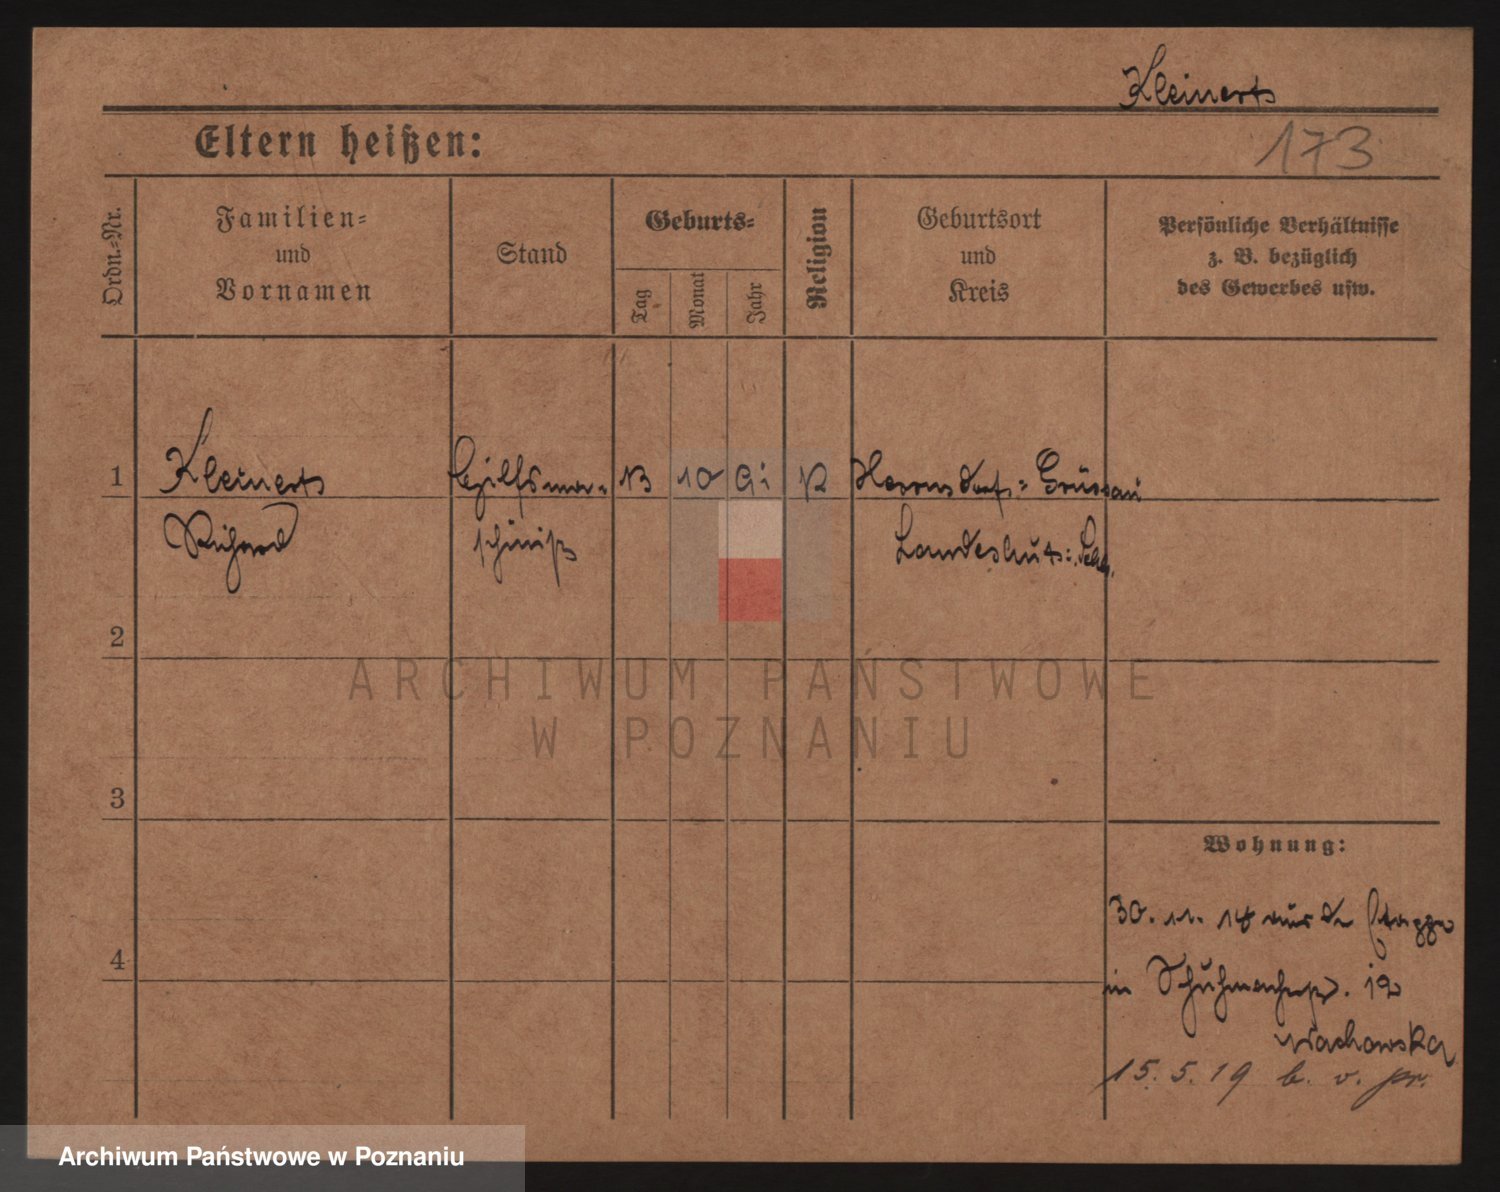 Kleinert
173
Eltern heißen:
Ordn.-Nr.
Familien-
und
Vornamen
Stand
Geburts-
Tag
Monat
Jahr
Religion
Geburtsort
und
Kreis
Persönliche Verhältnisse
z. B. bezüglich
des Gewerbes usw.
1 Kleinert 13 10 91 Hermsdorf- Grüssau
Richard Landeshut
2
3
4
Wohnung:
30. 11. 18 aus der
in 12
Wachowska
15. 5. 19 b. v. pr.
ARCHIWUM PAŃSTWOWE
W POZNANIU
Archiwum Państwowe w Poznaniu